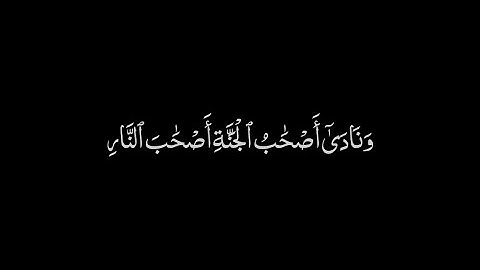 وَنَادَىٰٓ أَصْحَٰبُ ٱلْجَنَّةِ أَصْحَٰبَ ٱلنَّارِ